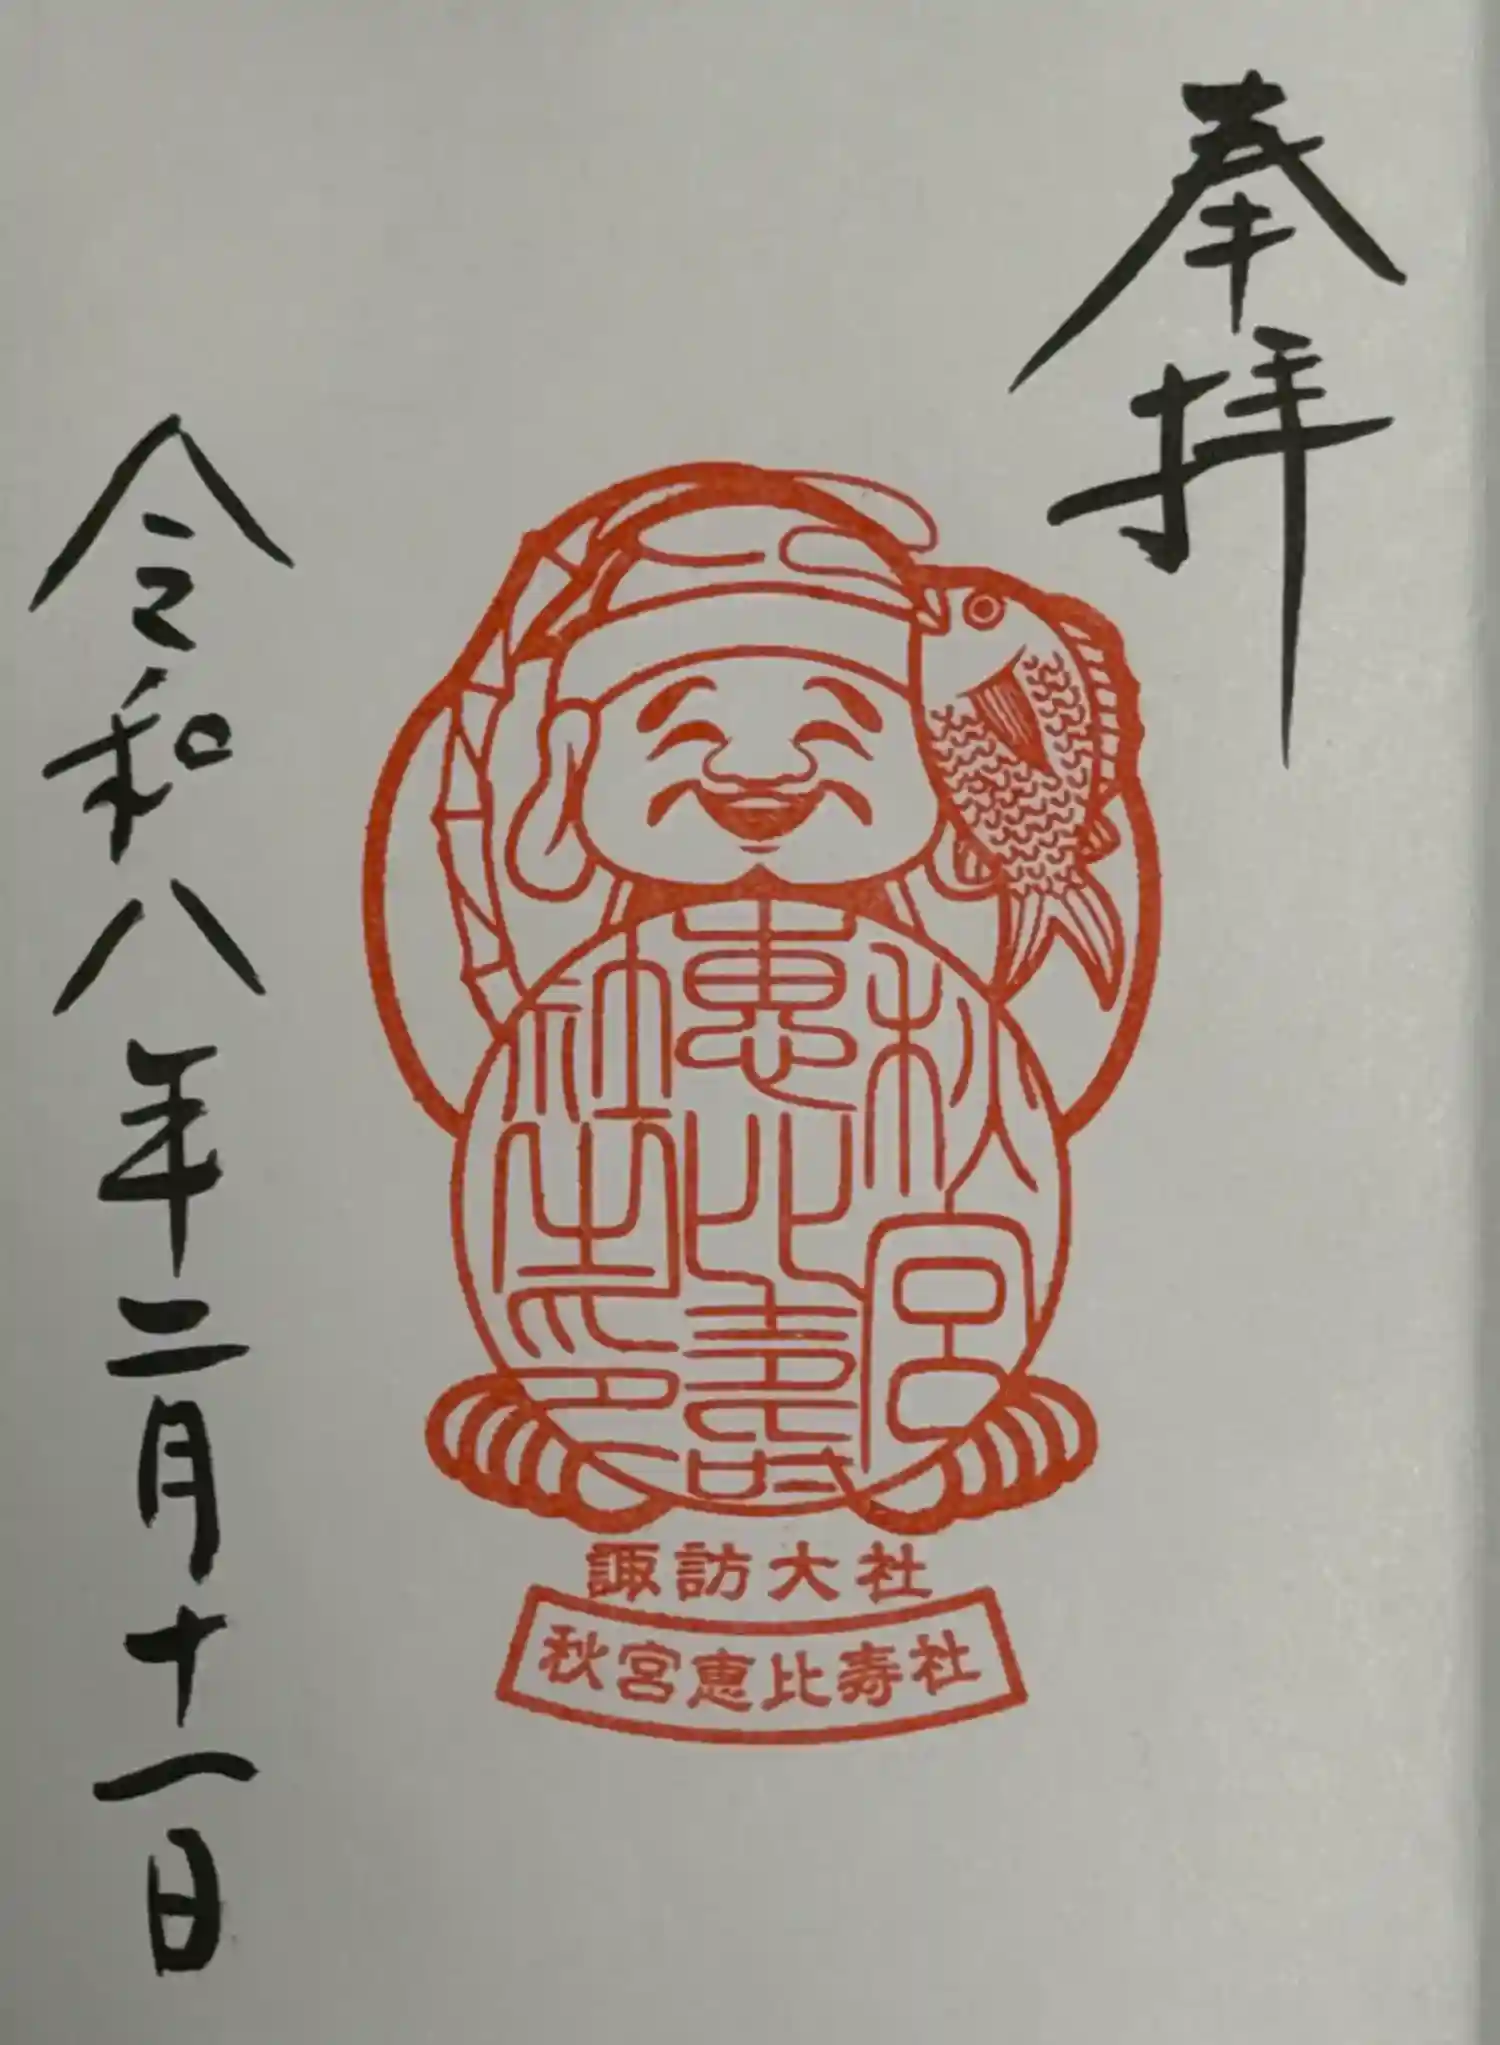 奉拝
秋宮
恵比寿
社之印
諏訪大社
秋宮恵比寿社
令和八年二月十一日